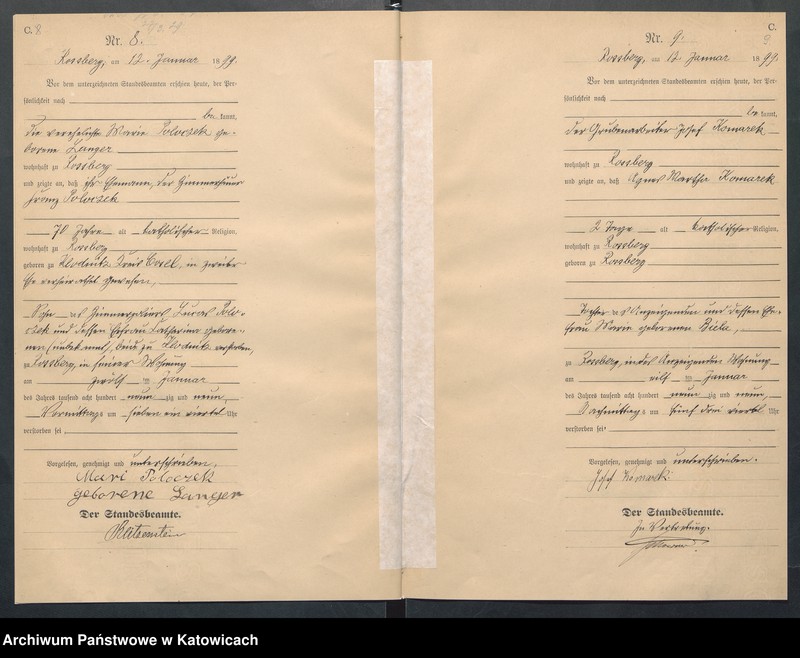 C. 8
Nr. 8.
Rossberg, am 12. Januar 1899.
Vor dem unterzeichneten Standesbeamten erschien heute, der Per-
sönlichkeit nach
be kannt,
die verehelichte Marie Poloczek ge-
borene Langer
wohnhaft zu Rossberg
und zeigte an, daß ihr Ehemann, der Zimmerhauer
Franz Poloczek
70 Jahre alt katholischer Religion,
wohnhaft zu Rossberg
geboren zu Klodnitz Kreis Cosel, in zweiter
Ehe verheirathet gewesen,
Sohn des Lucas Polo-
czek und dessen Ehefrau Katharina gebore-
nen (unbekannt), beide zu Klodnitz verstorben,
zu Rossberg, in seiner Wohnung
am zwölf ten Januar
des Jahres tausend acht hundert neun zig und neun,
Vormittags um sieben ein viertel Uhr
verstorben sei
Vorgelesen, genehmigt und unterschrieben.
Mari Poloczek
geborene Langer
Der Standesbeamte.
C.
9
Nr. 9.
Rossberg, am 12 Januar 1899.
Vor dem unterzeichneten Standesbeamten erschien heute, der Per-
sönlichkeit nach
be kannt,
der Grubenarbeiter Josef Komarek
wohnhaft zu Rossberg
und zeigte an, daß Agnes Martha Komarek
2 Tage alt katholischer Religion,
wohnhaft zu Rossberg
geboren zu Rossberg
Tochter des Anzeigenden und dessen Ehe-
frau Marie geborenen
zu Rossberg, in des Anzeigenden Wohnung
am elf ten Januar
des Jahres tausend acht hundert neun zig und neun,
Nachmittags um fünf drei viertel Uhr
verstorben sei
Vorgelesen, genehmigt und unterschrieben.
Josef Komarek
Der Standesbeamte.
In Vertretung.
Archiwum Państwowe w Katowicach